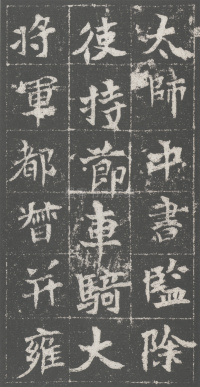 太師中書監除
使持節車騎大
將軍都督并雍